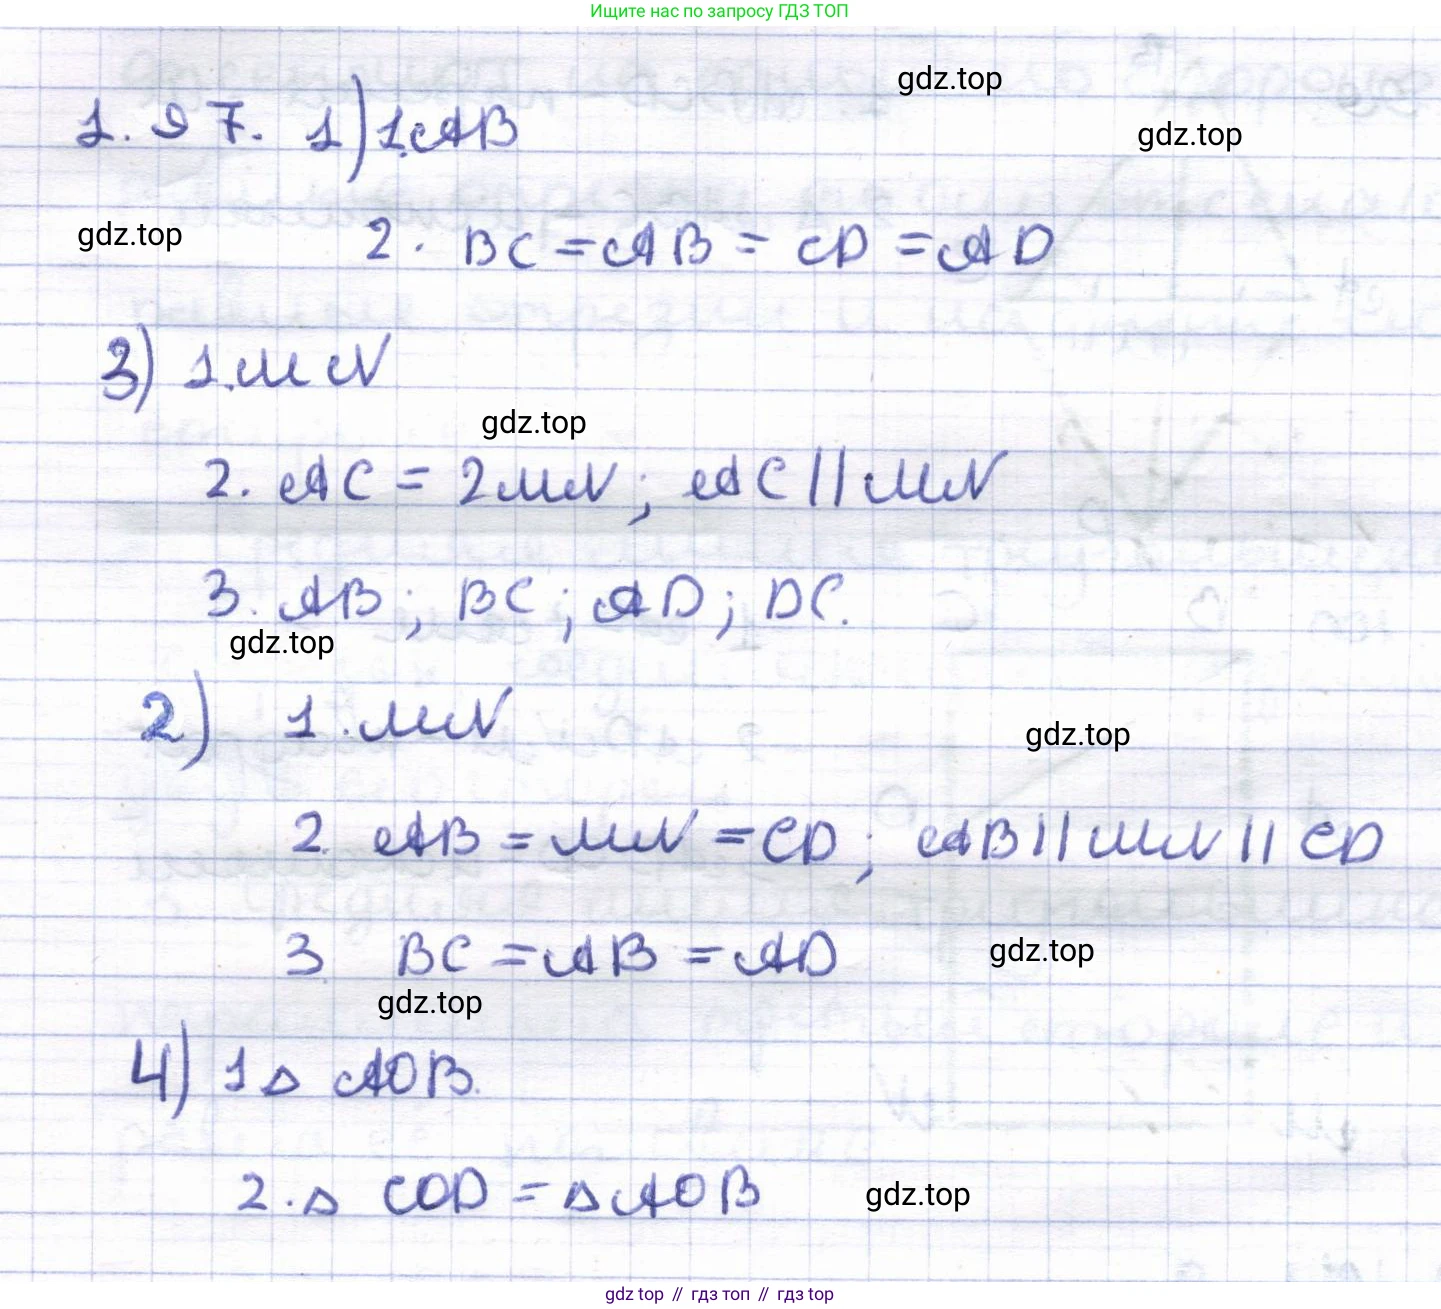 Ищите нас по запросу ГДЗ ТОП
gdz.top
1.97. 1) 1. AB
gdz.top
gdz.top
2. BC = AB = CD = AD
3) 1. MN
gdz.top
2. AC = 2MN; AC || MN
3. AB; BC; AD; DC.
gdz.top
2) 1. MN
gdz.top
2. AB = MN = CD; AB || MN || CD
3. BC = AB = AD
gdz.top
gdz.top
4) 1 △ AOB.
2. △ COD = △ AOB
gdz.top
gdz top // гдз топ // гдз top